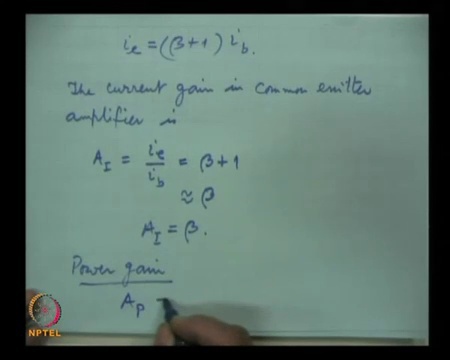 i_e = (β+1) i_b.
The current gain in common emitter
amplifier is
A_I = i_e / i_b = β+1
≈ β
A_I = β.
Power gain
A_p
NPTEL